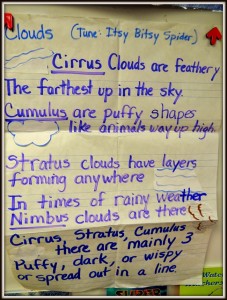 Clouds (Tune: Itsy Bitsy Spider)
Cirrus Clouds are feathery
The farthest up in the sky.
Cumulus are puffy shapes
like animals way up high.
Stratus clouds have layers
forming anywhere
In times of rainy weather
Nimbus clouds are there
Cirrus, Stratus, Cumulus
there are mainly 3
Puffy, dark, or wispy
or spread out in a line.